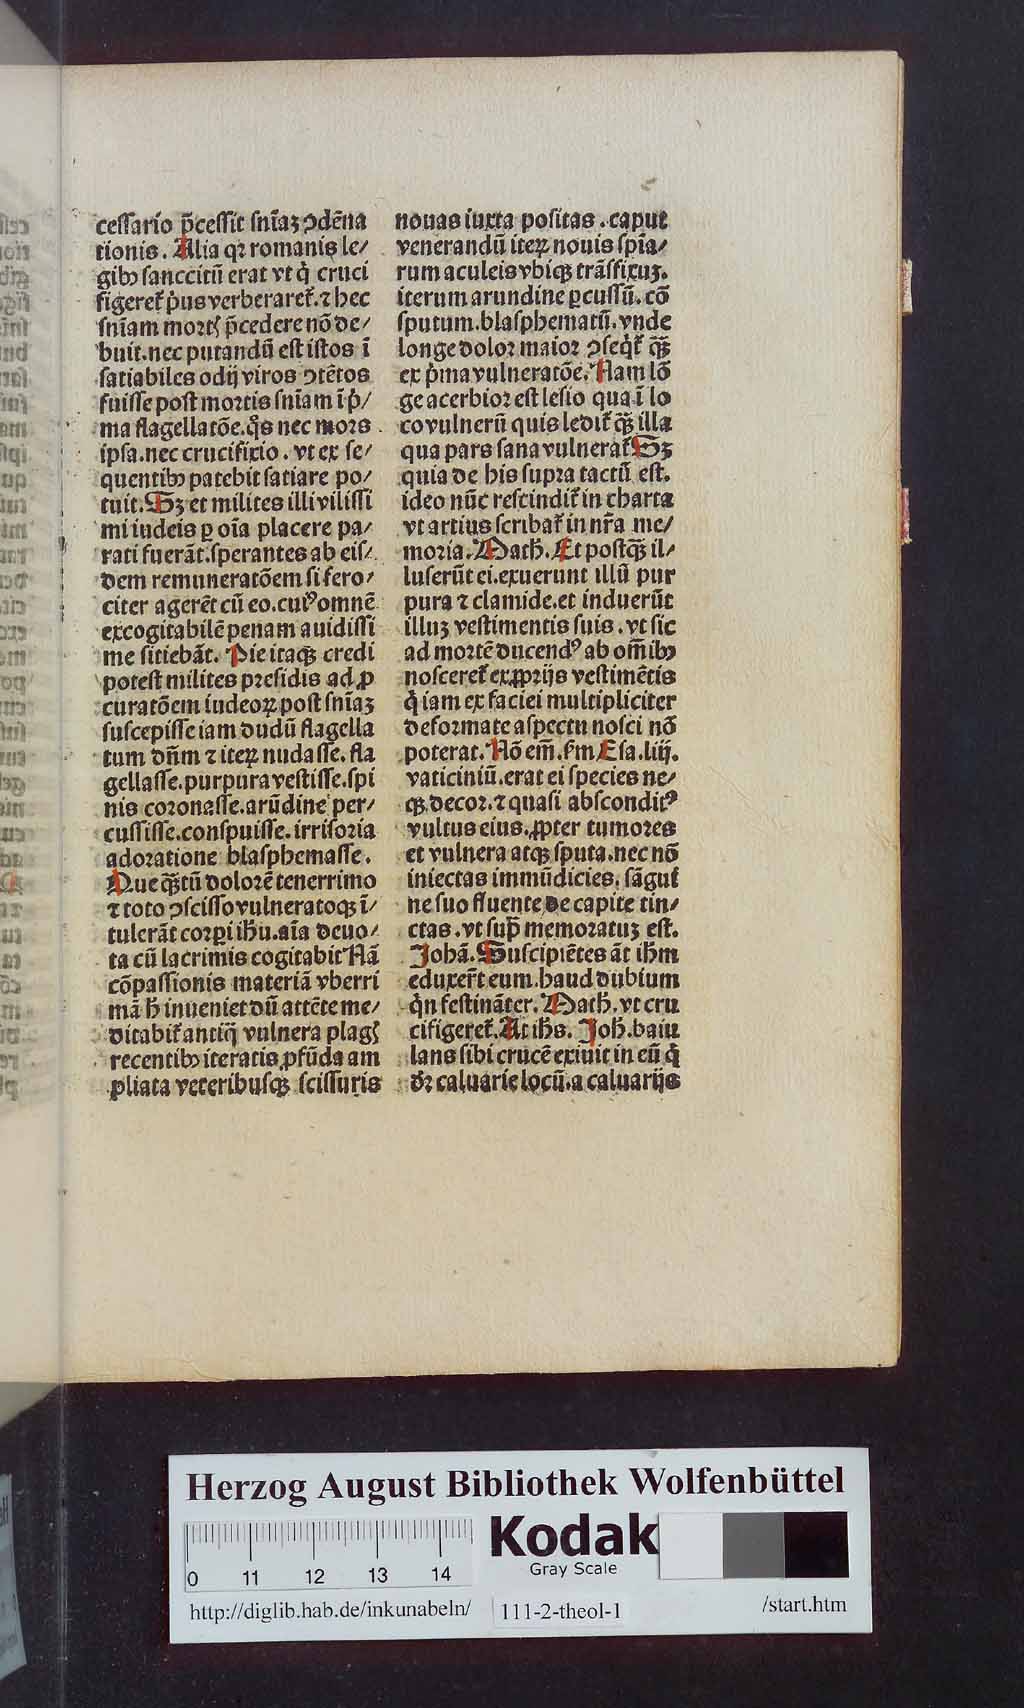 cessario p̄cessit sn̄iaꝫ ↄdēna
tionis. Alia qꝛ romanis le⸗
gibꝰ sanccitū erat vt qͥ cruci
figeret᷑ pͥus verberaret᷑. ⁊ hec
sn̄iam mortꝭ p̄cedere nō de⸗
buit. nec putandū est istos ī
satiabiles odij viros ↄtētos
fuisse post mortis sn̄iam ī pͥ⸗
ma flagellatōe. qͦs nec mors
ipsa. nec crucifixio. vt ex se⸗
quentibꝰ patebit satiare po⸗
tuit. Sꝫ et milites illi vilissi
mi iudeis ꝑ oīa placere pa⸗
rati fuerāt. sperantes ab eis⸗
dem remuneratōem si fero⸗
citer agerēt cū eo. cuiꝰ omnē
excogitabilē penam auidissi
me sitiebāt. Pie itaqꝫ credi
potest milites presidis ad ꝓ
curatōem iudeoꝝ post sn̄iaꝫ
suscepisse iam dudū flagella
tum dn̄m ⁊ iteꝝ nudasse. fla
gellasse. purpura vestisse. spi
nis coronasse. arūdine per⸗
cussisse. conspuisse. irrisoria
adoratione blasphemasse.
Que qꝫ̄tū dolorē tenerrimo
⁊ toto ↄscisso vulneratoqꝫ ī⸗
tulerāt corꝑi ih̄u. aīa deuo⸗
ta cū lacrimis cogitabit Nā
cōpassionis materiā vberri
mā h̄ inueniet dū attēte me⸗
ditabit᷑ antiqͥ vulnera plagꝭ
recentibꝰ iteratis ꝓfūda am
pliata veteribusqꝫ scissuris
nouas iuxta positas. caput
venerandū iteꝝ nouis spīa⸗
rum aculeis vbiqꝫ trāsfixuꝫ.
iterum arundine ꝑcussū. cō
sputum. blasphematū. vnde
longe dolor maior ↄseqͥt᷑ qꝫ̄
ex pͥma vulneratōe. Nam lō
ge acerbior est lesio qua ī lo
co vulnerū quis ledit᷑ qꝫ̄ illa
qua pars sana vulnerat᷑ Sꝫ
quia de his supra tactū est.
ideo nūc rescindit᷑ in charta
vt artius scribat᷑ in nr̄a me⸗
moria. Math̄. Et postqꝫ̄ il⸗
luserūt ei. exuerunt illū pur
pura ⁊ clamide. et induerūt
illuꝫ vestimentis suis. vt sic
ad mortē ducendꝰ ab om̄ibꝰ
nosceret᷑ ex ꝓprijs vestimētis
qͥ iam ex faciei multipliciter
deformate aspectu nosci nō
poterat. Nō em̄. ẜm Esa. liij.
vaticiniū. erat ei species ne⸗
qꝫ decor. ⁊ quasi absconditꝰ
vultus eius. ꝓpter tumores
et vulnera atqꝫ sputa. nec nō
iniectas immūdicies. sāgui
ne suo fluente de capite tin⸗
ctas. vt sup̄ memoratuꝫ est.
Johā. Suscipiētes āt ih̄m
eduxer̄t eum. haud dubium
qͥn festināter. Math̄. vt cru
cifigeret᷑. At ih̄s. Joh̄. baiu
lans sibi crucē exiuit in eū qͥ
dr̄ caluarie locū. a caluarijs
Herzog August Bibliothek Wolfenbüttel
Kodak
Gray Scale
0 11 12 13 14
http://diglib.hab.de/inkunabeln/ 111-2-theol-1 /start.htm